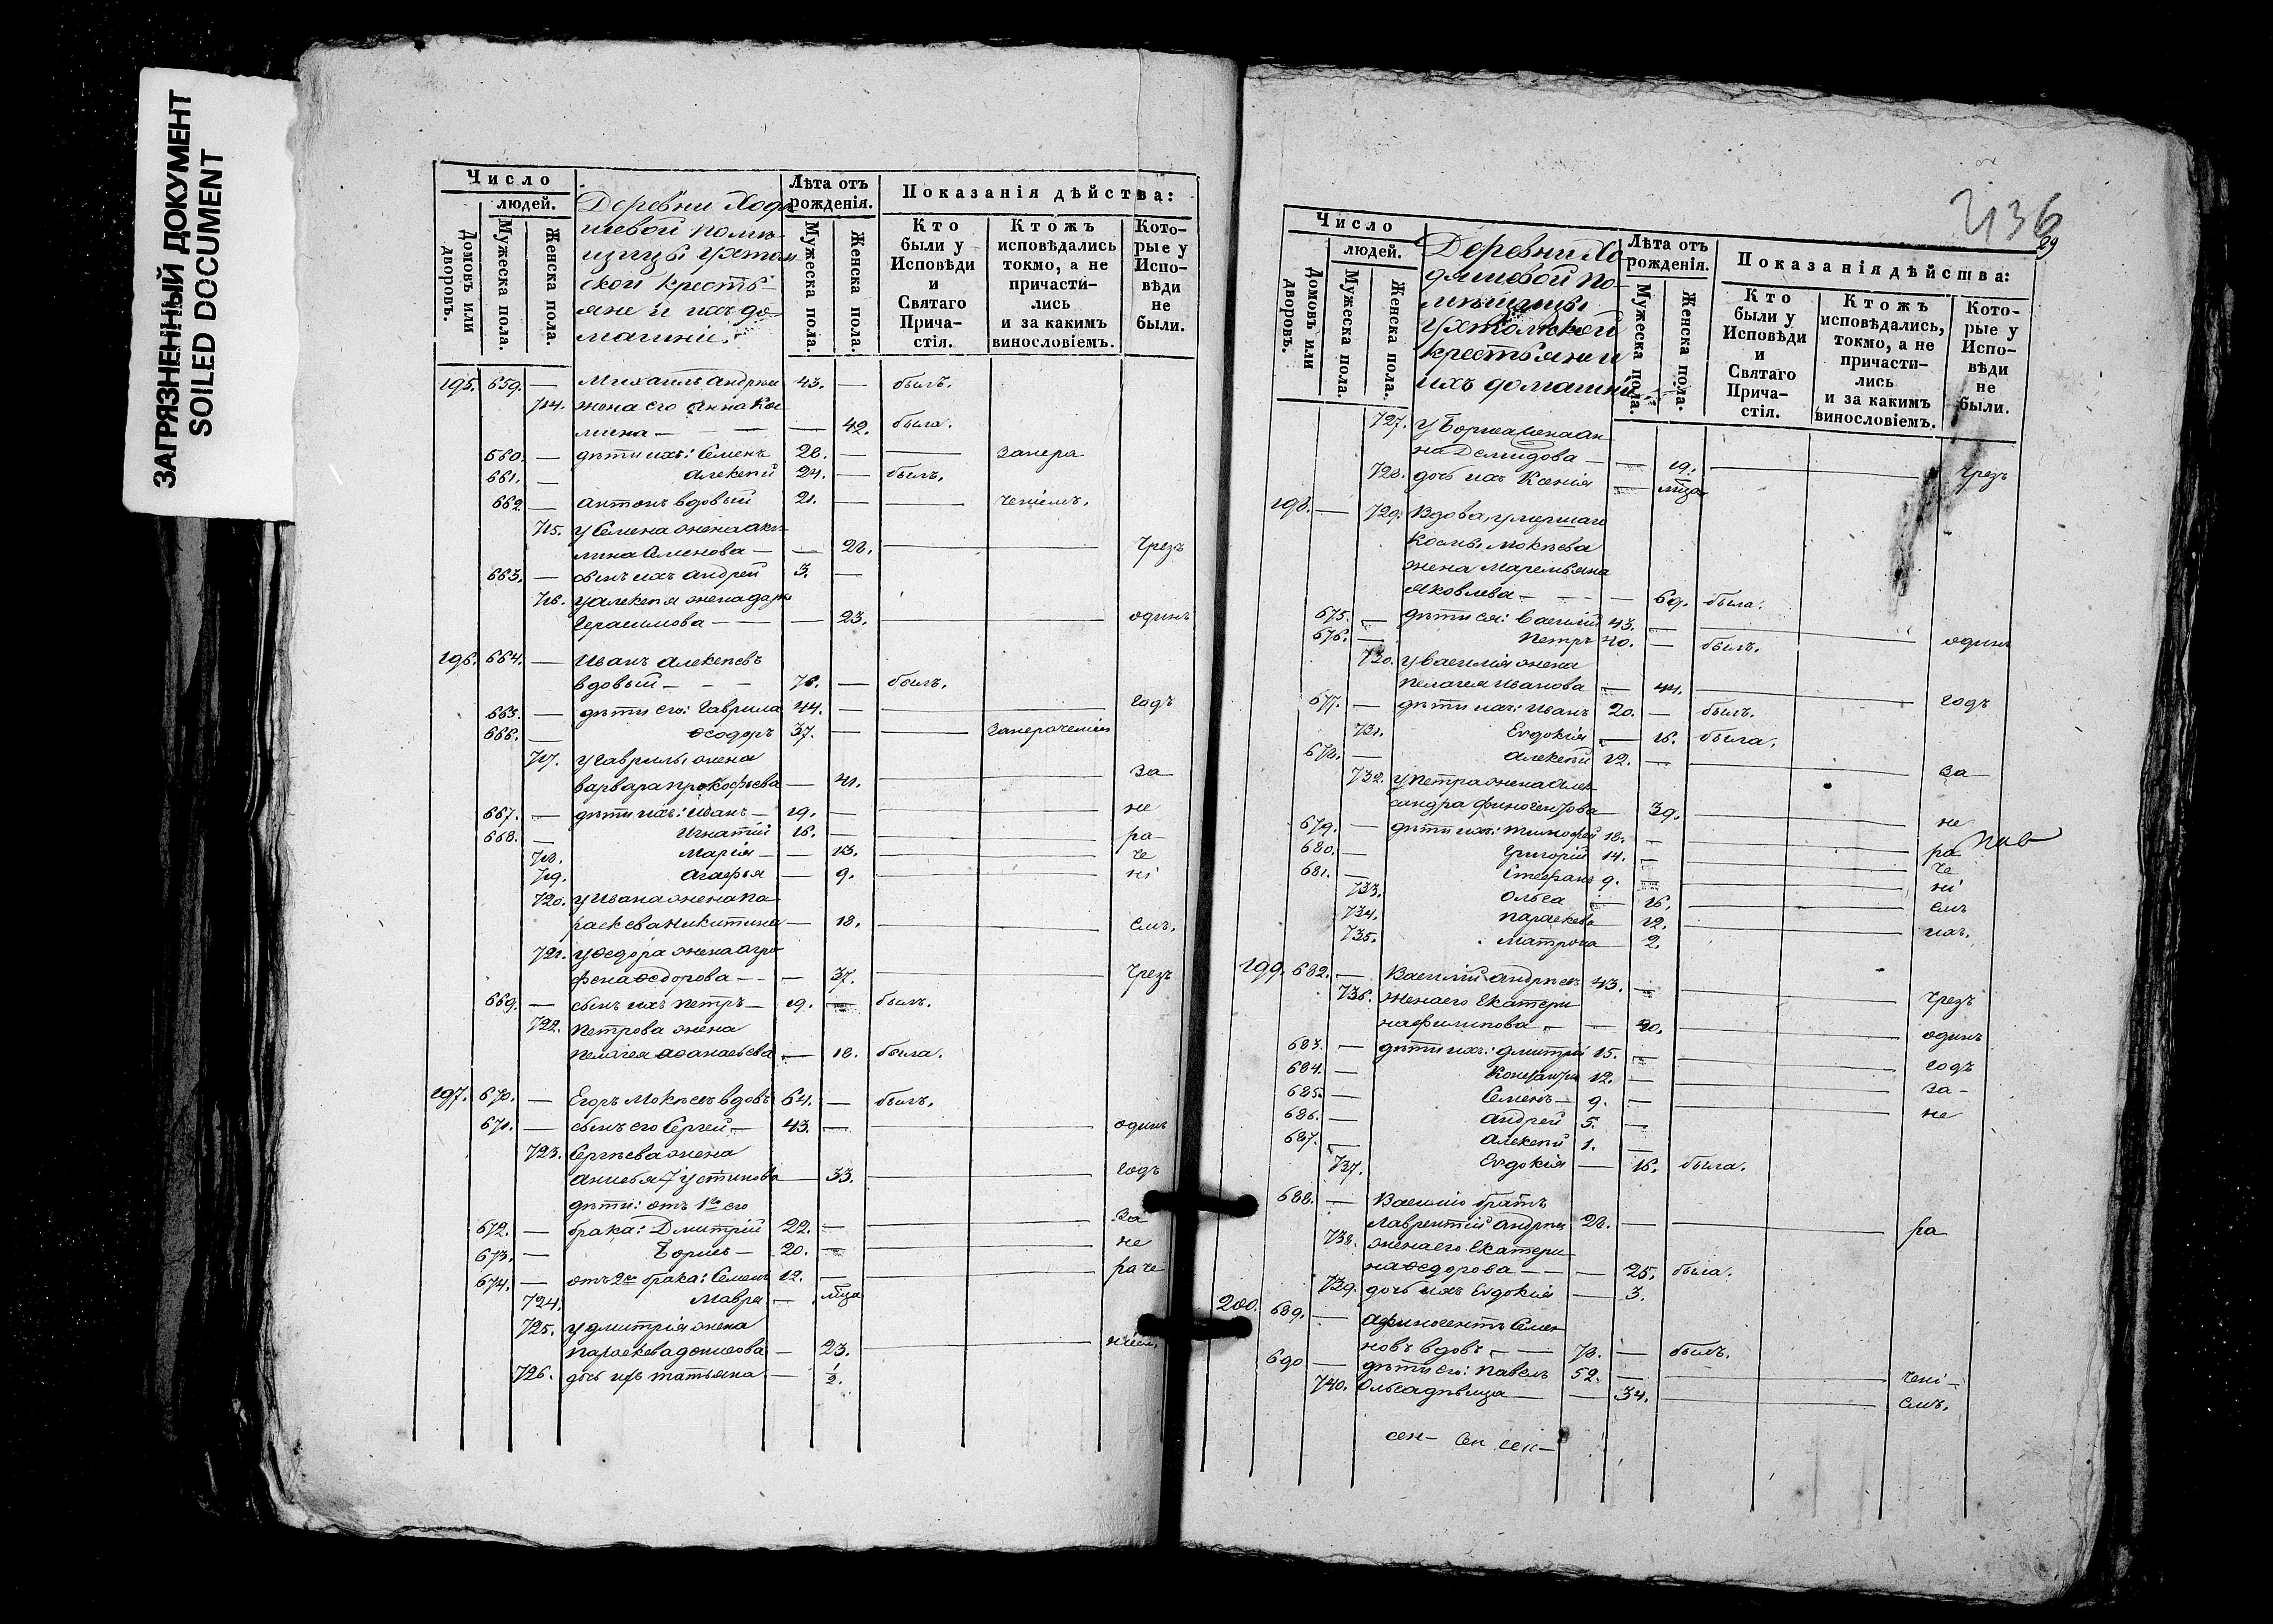 ЗАГРЯЗНЕННЫЙ ДОКУМЕНТ
SOILED DOCUMENT
Число
людей.
Домовъ или дворовъ.
Мужеска пола.
Женска пола.
Деревни Ходя
шевой помѣ
щицы Ухтом
ской крестья
яне и ихъ до
машніи:
Лѣта отъ рожденія.
Мужеска пола.
Женска пола.
Показанія дѣйства:
Кто были у Исповѣди и Святаго Причастія.
Ктожъ исповѣдались токмо, а не причастились и за какимъ винословіемъ.
Которые у Исповѣди не были.
195. 659. — Михаилъ Андрѣе 43. — былъ.
714. жена его Анна Кос
мина — — 42. была.
660. — дѣти ихъ: Семенъ 28. — — Занера
661. — Алексѣй 24. — былъ.
662. — Антонъ вдовый 21. — — ченіемъ.
715. у Семена жена Аку
лина Семенова — — 28. — чрезъ
663. — сынъ ихъ Андрей 3. —
716. у Алексѣя жена Дарья
Герасимова — — 23. — одинъ
196. 664. — Иванъ Алексѣевъ
вдовый — 76. — былъ.
665. — дѣти его: Гаврила 44. — — годъ
666. — Ѳеодоръ 37. — — Занераченіем
717. у Гаврилы жена
Варвара Прокофьева — 41. — за
667. — дѣти ихъ: Иванъ — 19. — — не
668. — Игнатій 16. — — ра
718. Марія — — 13. — че
719. Агафья — 9. — ні
720. у Ивана жена Па
раскева Никитина — 18. — емъ.
721. у Ѳедора жена Агра
фена Ѳедорова — — 37. — чрезъ
669. — сынъ ихъ Петръ — 19. — былъ.
722. Петрова жена
Пелагея Аѳанасьева — 18. была.
197. 670. — Егоръ Мокѣевъ вдовъ 64. — былъ.
671. — сынъ его Сергей — 43. — — одинъ
723. Сергѣева жена
Анисья Іустинова — 33. — годъ
дѣти: отъ 1го его
672. — брака: Дмитрій 22. — — за
673. — Борисъ — 20. — — не
674. — отъ 2го брака: Семенъ 12. — — раче
724. Мавра —
725. у Дмитрія жена
Параскева Денисова — 23. — ніем.
726. дочь ихъ Татьяна — ½.
436
69
Число
людей.
Домовъ или дворовъ.
Мужеска пола.
Женска пола.
Деревни Хо
дяшевой по
мѣщицы
Ухтомской
крестьяне и
ихъ домашній:
Лѣта отъ рожденія.
Мужеска пола.
Женска пола.
Показанія дѣйства:
Кто были у Исповѣди и Святаго Причастія.
Ктожъ исповѣдались, токмо, а не причастились и за какимъ винословіемъ.
Которые у Исповѣди не были.
727. у Бориса жена Ан
на Демидова — — 19. — чрезъ
728. дочь ихъ Ксенія —
198. — 729. Вдова, умершаго
Космы Мокѣева
жена Маремьяна
Яковлева — — 69. была.
675. — дѣти ея: Василій 43. — — одинъ
676. — Петръ 40. — былъ.
730. у Василія жена
Пелагея Иванова — 44. — годъ
677. — дѣти ихъ: Иванъ 20. — былъ.
731. Евдокія — 16. была.
678. — Алексѣй 12. — — за
732. у Петра жена Алек
сандра Финогенова — 39. — не
679. — дѣти ихъ: Тимофей 18. — — ра
680. — Григорій 14. — — че
681. — Стефанъ 9. — — ні
733. Ольга — 16. — емъ
734. Параскева — 12. — ихъ.
735. Матрона — 2.
199. 682. — Василій Андрѣевъ 43. — — чрезъ
736. жена его Екатери
на Филипова — — 40. — одинъ
683. — дѣти ихъ: Дмитрій 15. — — годъ
684. — Константин 12. — — за
685. — Семенъ — 9. — — не
686. — Андрей 5. —
687. — Алексѣй 1. —
737. Евдокія — 16. была.
688. — Василію братъ
Лаврентій Андрѣев 28. — — ра
738. жена его Екатери
на Ѳедорова — — 25. была.
739. дочь ихъ Евдокія — 3.
200. 689. — Афиногентъ Семе
новъ вдовъ — — 73. — былъ.
690 — дѣти его: Павелъ 52. — — чені
740. Ольга дѣвица — — 34. — емъ.